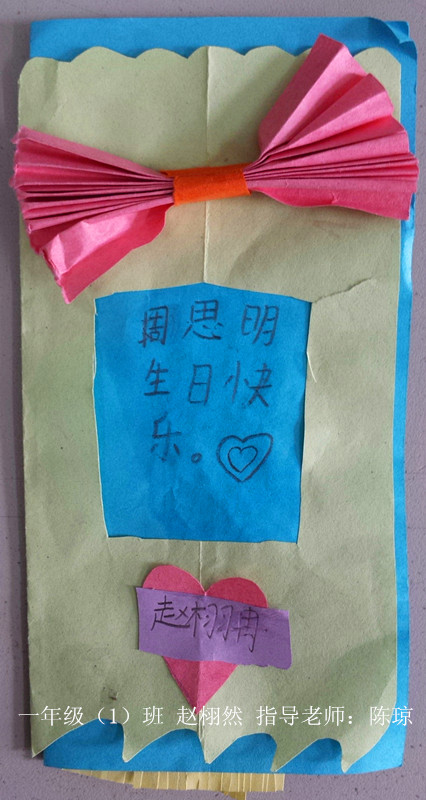 周思明
生日快
乐。
赵栩冉
一年级（1）班 赵栩然 指导老师：陈琼